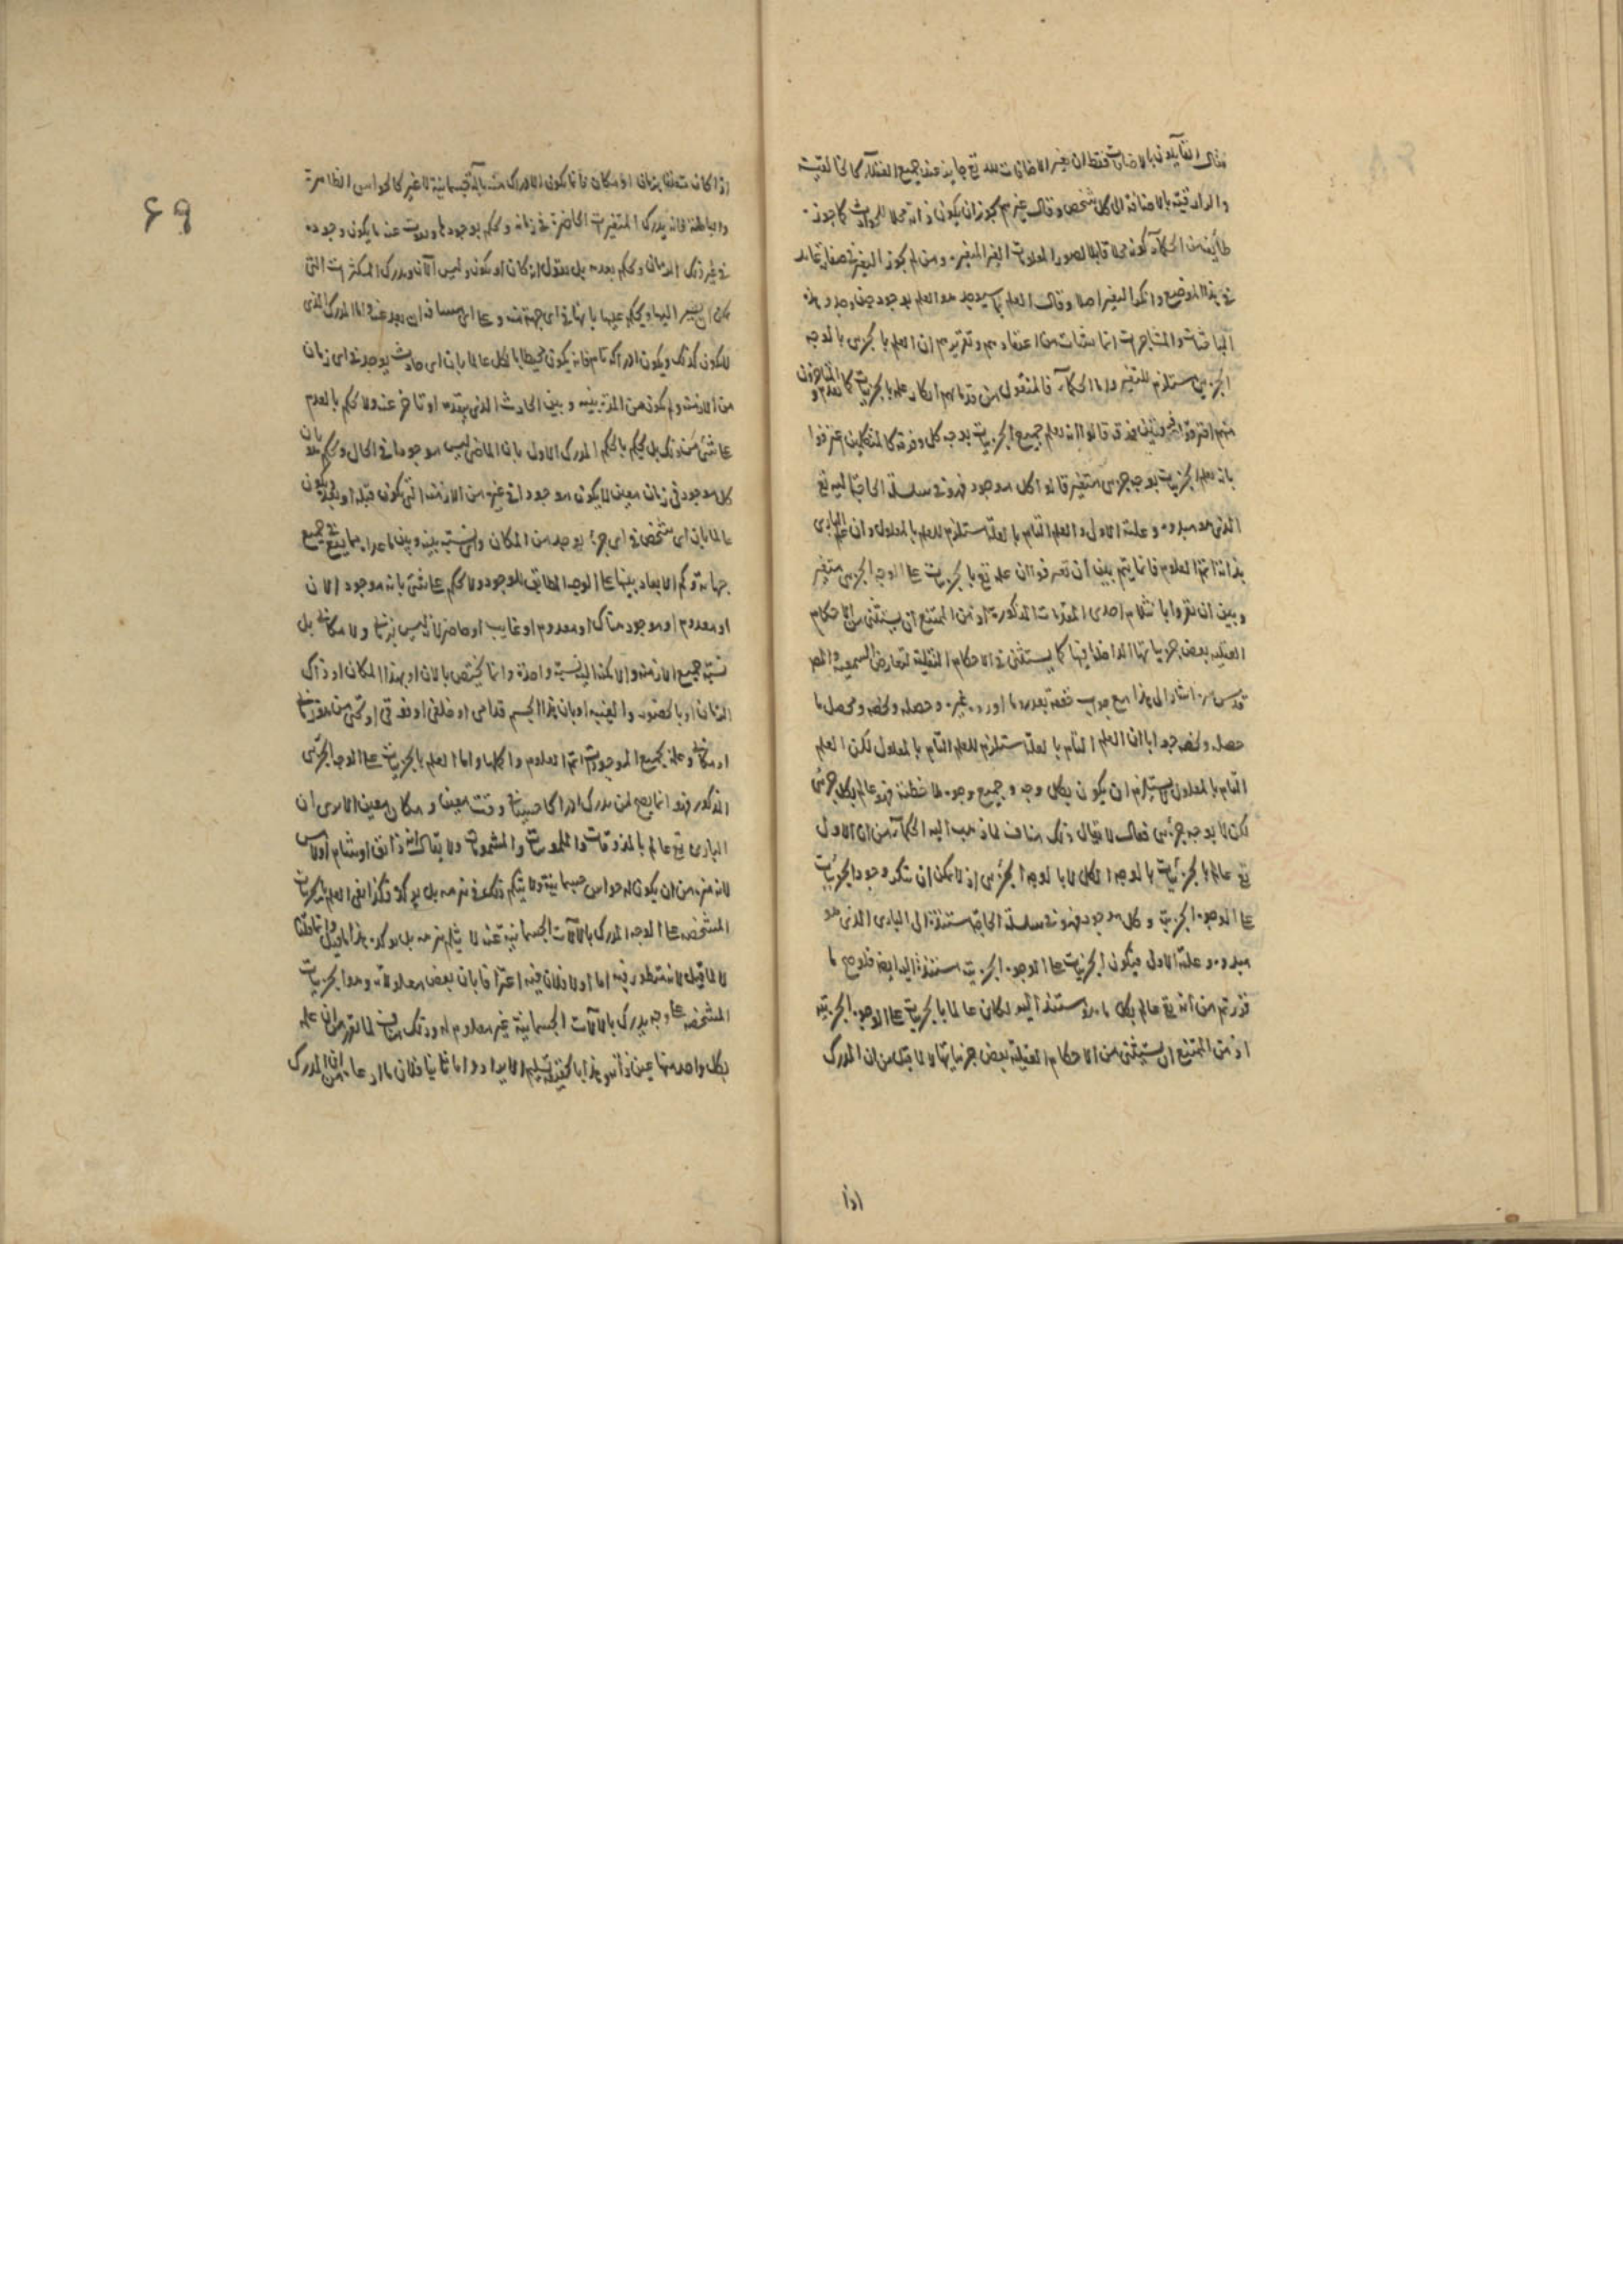 فقال القائلون بالاضافات فقط ان تغير الاضافات لله تع جايز عند جميع العقلاء كالخالقية
والرازقية بالاضافة الى كل شخص وقال غيرهم يجوز ان يكون ذاته محلا للحوادث كما جوزه
طائفة من الحكماء كونه محلا قابلا لصور المعلومات الغير المتغيرة ومن لم يجوز التغير في صفاته تعاند
في هذا الموضع وانكر التغير اصلا وقال العلم بما سيوجد هو العلم بوجوده حين وجد وهذه
المباحثات والمشاجرات انما نشات من اعتقادهم وتقريرهم ان العلم بالجزئي بالوجه
الجزئي مستلزم للتغير واما الحكماء فالمنقول من قدمائهم انكار علمه بالجزئيات المتاخرون
منهم افترقوا قالوا انه يعلم جميع الجزئيات بوجه كلي وفرقة كالمتكلمين اعترفوا
بان يعلم الجزئيات بوجه جزئي متغير قالوا كل موجود فهو في سلسلة الحاجة اليه تع
الذي هو مبدوه وعلته الاولى والعلم التام بالعلة مستلزم للعلم بالمعلول وان علم الباري
بذاته اتم العلوم فانما يتم بين ان تعترفوا ان علمه تع بالجزئيات على الوجه الجزئي متغير
وبين ان تقروا بانثلام احدى المقدمات المذكورة اذ من الممتنع ان يستثنى من الاحكام
العقلية بعض جزئياتها الداخلة فيها كما يستثنى في الاحكام النقلية لتعارض السمعية والمص
قدس سره اشار الى هذا مع جواب خفته بعد ما اورده غيره وحصله ولخصه ومحصل ما
حصله ولخصه جوابا ان العلم التام بالعلة مستلزم للعلم التام بالمعلول لكن العلم
التام بالمعلول لا يستلزم ان يكون بكل وجه وجميع وجوه ملاحظته فهو عالم بكل جزئي
لكن لا بوجه جزئي فقال لا يقال ذلك مناف لما ذهب اليه الحكماء من ان الاول
تع عالم بالجزئيات بالوجه الكلي لا بالوجه الجزئي اذ لا يمكن ان تنكر وجود الجزئيات
على الوجوه الجزئية وكل موجود فهو في سلسلة الحاجة مستندة الى الباري الذي هو
مبدوه وعلته الاولى فيكون الجزئيات على الوجوه الجزئية مستندة اليه ايضا فلو صح ما
قررتم من انه تع عالم بكل ما هو مستند اليه لكان عالما بالجزئيات على الوجوه الجزئية
اذ من الممتنع ان يستثنى من الاحكام العقلية بعض جزئياتها لا لما قيل من ان المدرك
اذا
۶۹
اذا كان متعلقا بزمان او مكان فانما يكون الادراك منه بآلة جسمانية لا غير كالحواس الظاهرة
والباطنة فانه يدرك المتغيرات الحاضرة في زمانه ويحكم بوجودها ويفوت عنه ما يكون وجوده
في غير ذلك الزمان ويحكم بعدمه بل يقول انه كان او يكون وليس الآن ويدرك المتكثرات التي
يمكن ان يشير اليها ويحكم عليها بانها في اي جهة منه وعلى اي مسافة ان بعد عنه واما المدرك الذي
لا يكون كذلك ويكون ادراكه تاما فانه يكون محيطا بالكل عالما بان اي حادث يوجد في اي زمان
من الازمنة وكم يكون من المدة بينه وبين الحادث الذي يتقدمه او تاخر عنه ولا يحكم بالعدم
على شئ من ذلك بل يحكم بالحكم المدرك الاول بان الماضي ليس موجودا في الحال ويحكم هو بان
كل موجود في زمان معين لا يكون موجودا في غيره من الازمنة التي يكون قبله او بعده ويكون
عالما بان اي شخص في اي جزء يوجد من المكان واي نسبة بينه وبين ما عداه مما يقع في جميع
جهاته وكم الابعاد بينها على الوجه المطابق للوجود ولا يحكم على شئ بانه موجود الآن
او معدوم او موجود هناك او معدوم او غايب او حاضر لانه ليس بزماني ولا مكاني بل
نسبة جميع الازمنة والامكنة اليه نسبة واحدة وانما يختص بالآن او بهذا المكان او ذاك
الزمان او بالحضور والغيبة او بان هذا الجسم قدامي او خلفي او فوقي او تحتي من هو زماني
او مكاني وعلمه بجميع الموجودات اتم العلوم واكملها واما العلم بالجزئيات على الوجه الجزئي
المذكور فهو انما يصح لمن يدرك ادراكا حسيا في وقت معين او مكان معين الا ترى ان
الباري تع عالم بالمذوقات والملموسات والمشمومات ولا يقال انه ذائق او شام او لامس
لانه منزه من ان يكون له حواس جسمانية ولا ينثلم ذلك في تنزهه بل يؤكده وكذا نفي العلم بالجزئيات
المشخصة على الوجه المدرك بالآلات الجسمانية عنه لا يثلم تنزهه بل يؤكده هذا ما قيل
لا لما قيل لانه منظور فيه اما اولا فلان فيه اعترافا بان بعض معلولاته وهو الجزئيات
المشخصة على وجه يدرك بالآلات الجسمانية غير معلوم له وذلك مناف لما تقرر من ان علمه
بكل واحد منها عين ذاته وهذا بالحقيقة تسليم الايراد واما ثانيا فلان ما ادعاه من ان المدرك